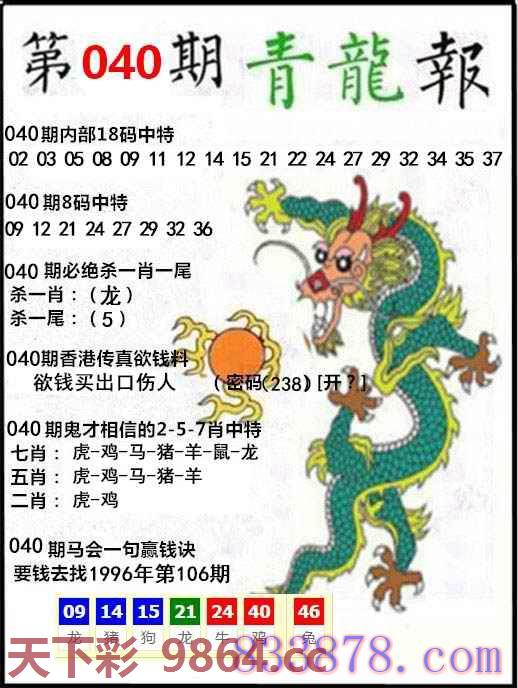 第040期 青龍報
040期内部18码中特
02 03 05 08 09 11 12 14 15 21 22 24 27 29 32 34 35 37
040期8码中特
09 12 21 24 27 29 32 36
040 期必绝杀一肖一尾
杀一肖:(龙)
杀一尾:(5)
040期香港传真欲钱料
欲钱买出口伤人 (密码(238)[开?]
040期鬼才相信的2-5-7肖中特
七肖:虎-鸡-马-猪-羊-鼠-龙
五肖:虎-鸡-马-猪-羊
二肖:虎-鸡
040期马会一句赢钱诀
要钱去找1996年第106期
09 14 15 21 24 40 46
龙 猪 狗 龙 牛 鸡 兔
天下彩 9864.cc
833878.com